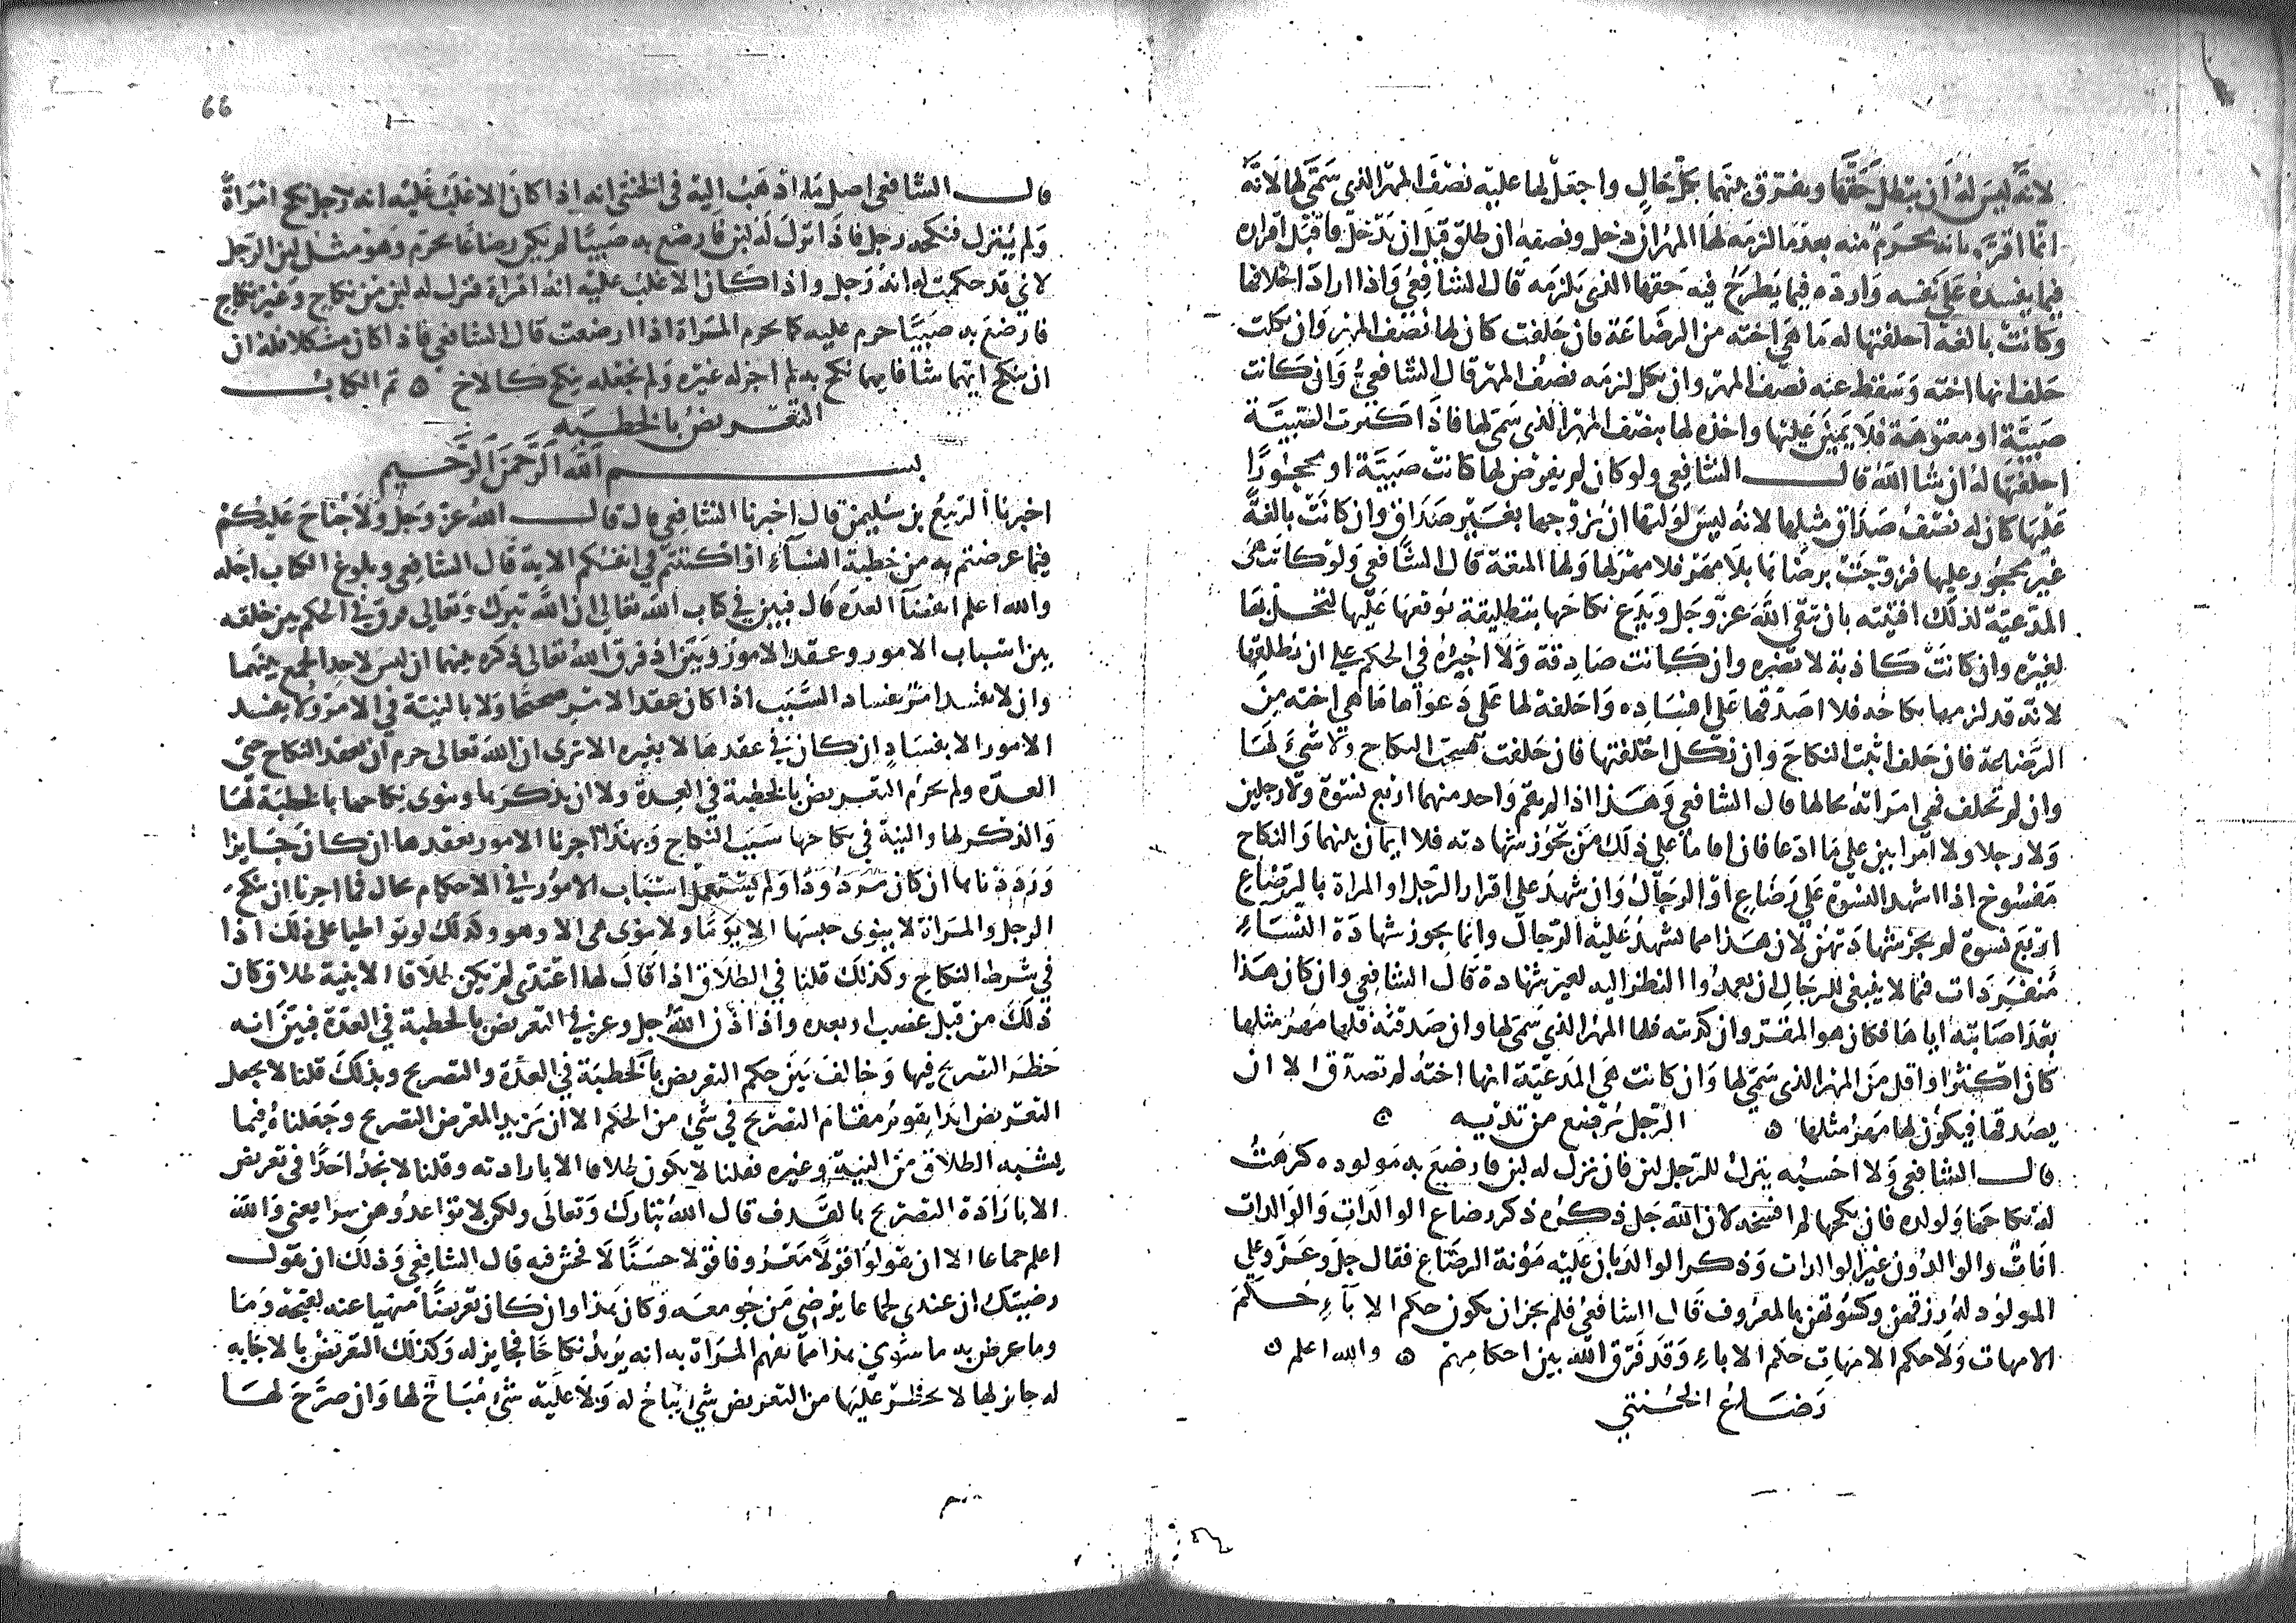 لانه ليس له ان يبطل حقها ويفرق بينهما بكل حال واجعل لها عليه نصف المهر الذي سمى لها لانه
انما اقر بانه محرم منه بعد ما لزمه لها المهر ان دخل ونصفه ان طلق قبل ان يدخل فاقبل اقراره
فيما يفسده على نفسه وارده فيما يطرح فيه حقها الذي يلزمه قال الشافعي واذا اراد احلافها
وكانت بالغة احلفتها له ما هي اخته من الرضاعة فان حلفت كان لها نصف المهر وان نكلت
حلف انها اخته وسقط عنه نصف المهر وان نكل لزمه نصف المهر قال الشافعي وان كانت
صبية او معتوهة فلا يمين عليها واخذه لها بنصف المهر الذي سمى لها فاذا كبرت الصبية
احلفتها له ان شا الله قال الشافعي ولو كان لم يفرض لها كانت صبية او محجورا
عليها كان له نصف صداق مثلها لانه ليس لوليها ان يزوجها بغير صداق وان كانت بالغة
غير محجور عليها فزوجت برضاها بلا مهر فلا مهر لها ولها المتعة قال الشافعي ولو كانت هي
المدعية لذلك افتيته بان يتقي الله عز وجل ويدع نكاحها بتطليقة يوقعها عليها لتحل بها
لغيره وان كانت كاذبة لا تضره وان كانت صادقة ولا اجبره في الحكم على ان يطلقها
لانه قد لزمها نكاحه فلا اصدقها على افساده واحلفه لها على دعواها ما هي اخته من
الرضاعة فان حلف اثبت النكاح وان نكل احلفتها فان حلفت فسخت النكاح ولا شي لها
وان لم تحلف فهي امراته بحالها قال الشافعي وهذا اذا لم يقم واحد منهما اربع نسوة ولا رجلين
ولا رجلا ولا امراتين على ما ادعا فان اقاما على ذلك من تجوز شهادته فلا ايمان بينهما والنكاح
مفسوخ اذا شهد النسوة على رضاع او الرجال وان شهد على اقرار الرجل او المراة بالرضاع
اربع نسوة لم يجز شهادتهن لان هذا مما يشهد عليه الرجال وانما يجوز شهادة النساء
منفردات فيما لا ينبغي للرجال ان يعمدوا النظر اليه لغير شهادة قال الشافعي وان كان هذا
بعد اصابته اياها فكان هو المقر وان كذبته فلها المهر الذي سمى لها وان صدقته فلها مهر مثلها
كان اكثر او اقل من المهر الذي سمى لها وان كانت هي المدعية انها اخته لم تصدق الا ان
يصدقها فيكون لها مهر مثلها ه الرجل يرضع من ثدييه ه
قال الشافعي ولا احسبه ينزل للرجل لبن فان نزل له لبن فارضع به مولوده كرهت
له نكاحها ولولده فان نكحها لم افسخه لان الله جل ذكره ذكر رضاع الوالدات والوالدات
اناث والوالدون غير الوالدات وذكر الوالد بان عليه مؤنة الرضاع فقال جل وعز وعلى
المولود له رزقهن وكسوتهن بالمعروف قال الشافعي فلم يجز ان يكون حكم الاباء حكم
الامهات ولا حكم الامهات حكم الاباء وقد فرق الله بين احكامهم ه والله اعلم ه
رضاع الخنثى
66
قال الشافعي اصل ما اذهب اليه في الخنثى انه اذا كان الاغلب عليه انه رجل نكح امراة
ولم ينزل فنكحه رجل فاذا نزل له لبن فارضع به صبيا لم يكن رضاعا يحرم وهو مثل لبن الرجل
لاني قد حكمت له انه رجل واذا كان الاغلب عليه انه امراة فنزل له لبن من نكاح وغير نكاح
فارضع به صبيا حرم عليه كما يحرم المراة اذا ارضعت قال الشافعي فاذا كان مشكلا فله ان
ان ينكح ايهما شا فايهما نكح به لم اجز له غيره ولم نجعله ينكح كالاخر ه تم الكتاب
التعريض بالخطبه
بسم الله الرحمن الرحيم
اخبرنا الربيع بن سليمن قال اخبرنا الشافعي قال قال الله عز وجل ولا جناح عليكم
فيما عرضتم به من خطبة النساء او اكننتم في انفسكم الاية قال الشافعي وبلوغ الكتاب اجله
والله اعلم انقضآ العدة قال فبين في كتاب الله تعالى ان الله تبرك وتعالى فرق في الحكم بين خلقه
بين اسباب الامور وعقد الامور وبين اذ فرق الله تعالى ذكره بينهما ان ليس لاحد الجمع بينهما
وان لا يفسد امر بفساد السبب اذا كان عقد الامر صحيحا ولا بالنية في الامر ولا يفسد
الامور الا بفساد ان كان في عقدها لا بغيره الا ترى ان الله تعالى حرم ان يعقد النكاح حتى
العدة ولم يحرم التعريض بالخطبة في العدة ولا ان يذكرها وينوى نكاحها بالخطبة لها
والذكر لها والنية في نكاحها سبب النكاح وبهذا اجرنا الامور بعقدها ان كان جايزا
ورددناها ان كان مردودا ولم يستعمل اسباب الامور في الاحكام بحال فاجزنا ان ينكح
الرجل والمراة لا ينوى حبسها الا يوما ولا تنوى هي الا هو وكذلك لو تواطيا على ذلك اذا
في شرط النكاح وكذلك قلنا في الطلاق اذا قال لها اعتدى لم يكن طلاقا الا بنية طلاق كان
ذلك من قبل غضب او بعده واذا اذن الله جل وعز في التعريض بالخطبة في العدة فبين انه
حظر التصريح فيها وخالف بين حكم التعريض بالخطبة في العدة والتصريح وبذلك قلنا لا يجعل
التعريض ابدا يقوم مقام التصريح في شي من الحكم الا ان يريد المعرض التصريح وجعلناه فيما
يشبه الطلاق من النية وغيره فقلنا لا يكون طلاقا الا بارادته وقلنا لا نحد احدا في تعريض
الا بارادة التصريح بالقذف قال الله تبارك وتعالى ولكن لا تواعدوهن سرا يعني والله
اعلم جماعا الا ان تقولوا قولا معروفا قولا حسنا لا فحش فيه قال الشافعي وذلك ان يقول
رضيتك ان عندى لجماعا يرضى من جومعه وكان هذا وان كان تعريضا منهيا عنه لقبحه وما
وما عرض به ما سوى هذا مما تفهم المراة به انه يريد نكاحا فجايز له وكذلك التعريض بالاجابه
له جايز لها لا يحظر عليها من التعريض شي يباح له ولا عليه شي مباح لها وان صرح لها